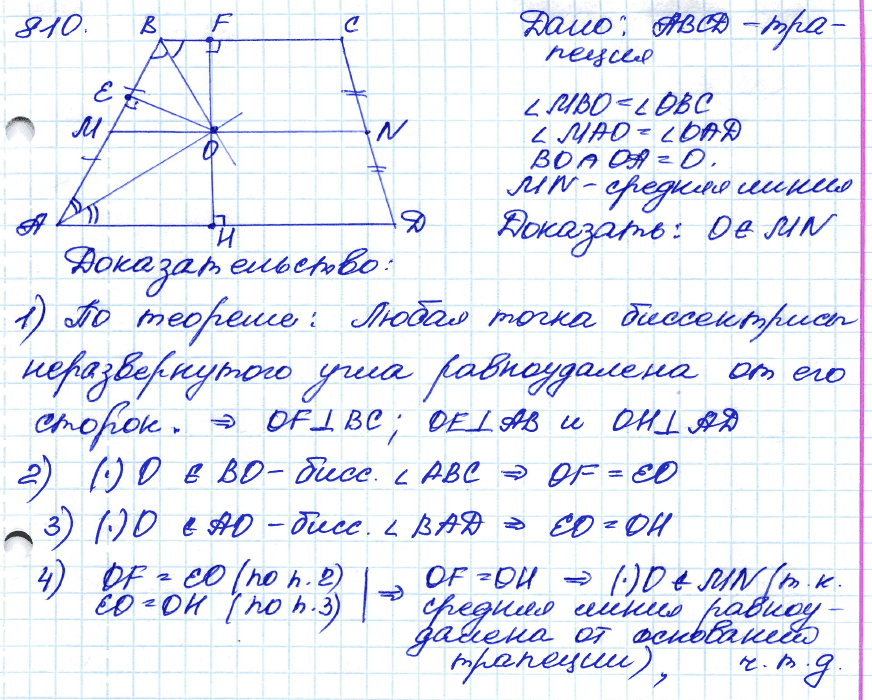 810.
B F C
E
M N
O
A H D
Дано: ABCD – тра-
пеция
∠MBO = ∠OBC
∠MAO = ∠OAD
BO ∩ OA = O.
MN – средняя линия
Доказать: O ∈ MN
Доказательство:
1) По теореме: Любая точка биссектрисы
неразвернутого угла равноудалена от его
сторон. ⇒ OF⊥BC; OE⊥AB и OH⊥AD
2) (·) O ∈ BO – бисс. ∠ABC ⇒ OF = EO
3) (·) O ∈ AO – бисс. ∠BAD ⇒ EO = OH
4) OF = EO (по п.2) | ⇒ OF = OH ⇒ (·) O ∈ MN (т.к.
EO = OH (по п.3) средняя линия равноу-
далена от оснований
трапеции), ч.т.д.